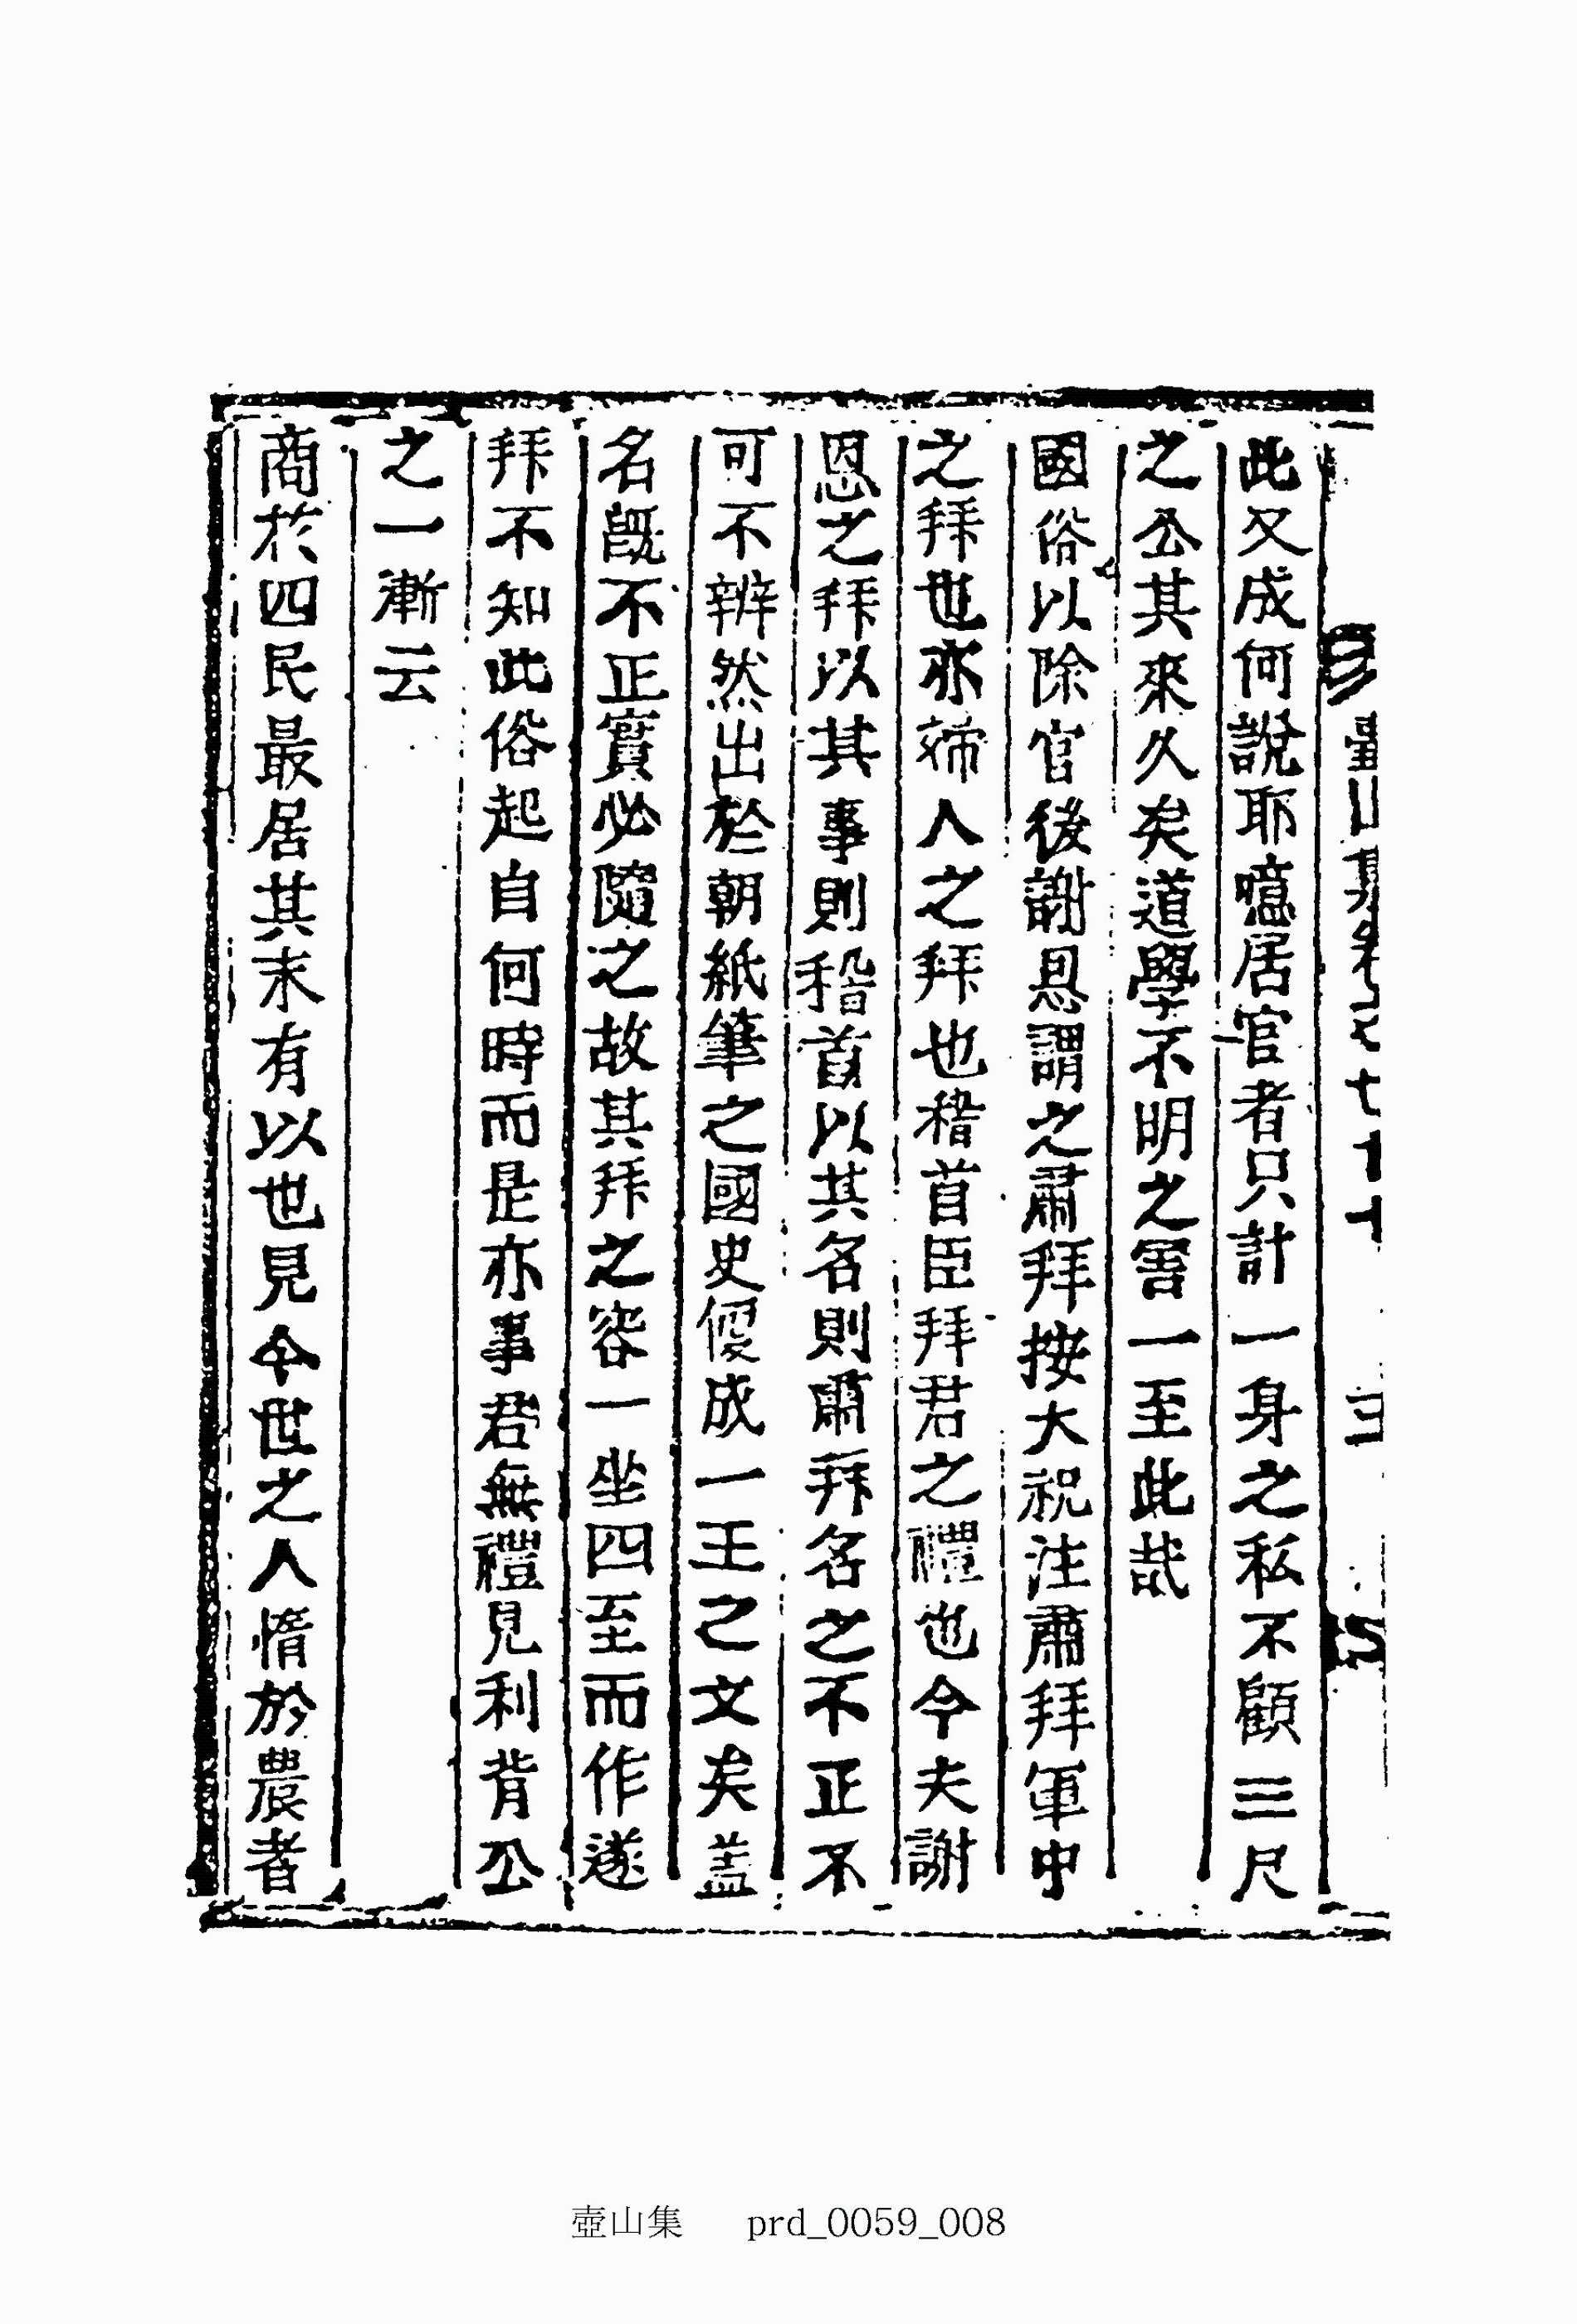 壺山集卷之七十七
三
此又成何說耶噫居官者只計一身之私不顧三尺
之公其來久矣道學不明之害一至此哉
國俗以除官後謝恩謂之肅拜按大祝注肅拜軍中
之拜也亦婦人之拜也稽首臣拜君之禮也今夫謝
恩之拜以其事則稽首以其名則肅拜名之不正不
可不辨然出於朝紙筆之國史便成一王之文矣盖
名旣不正實必隨之故其拜之容一坐四至而作遂
拜不知此俗起自何時而是亦事君無禮見利背公
之一漸云
商於四民最居其末有以也見今世之人惰於農者
壺山集 prd_0059_008